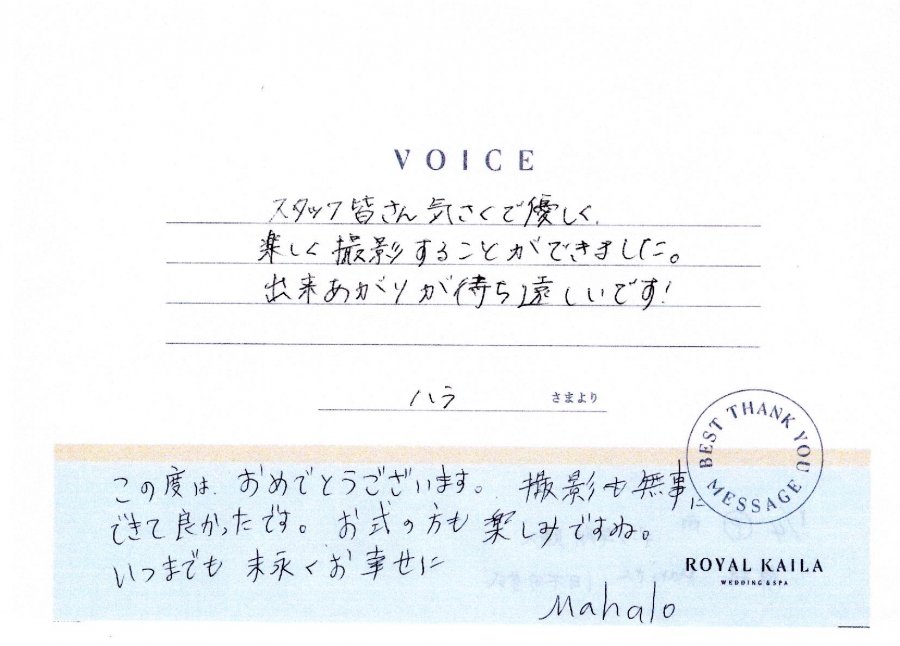 VOICE
スタッフ皆さん気さくで優しく、
楽しく撮影することができました。
出来あがりが待ち遠しいです!
ハラ さまより
BEST THANK YOU MESSAGE
この度は、おめでとうございます。撮影も無事に
できて良かったです。お式の方も楽しみですね。
いつまでも末永くお幸せに
Mahalo
ROYAL KAILA
WEDDING & SPA